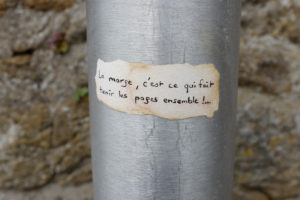 La marge, c'est ce qui fait
tenir les pages ensemble !...